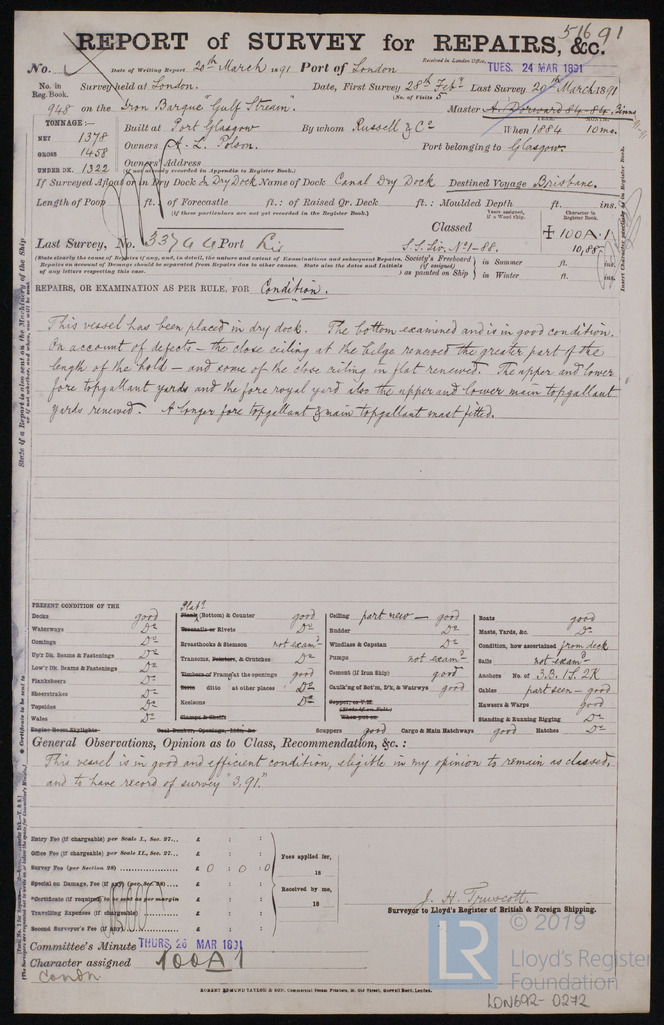 51691
REPORT of SURVEY for REPAIRS, &c.
Received in London Office, TUES. 24 MAR 1891
No. Date of Writing Report 20th March 1891 Port of London
No. in Reg. Book. Survey held at London. Date, First Survey 28th Feby Last Survey 20th March 1891
(No. of Visits 5
948 on the Iron Barque "Gulf Stream. Master
TONNAGE:— Built at Port Glasgow By whom Russell & Co When 1884 10 mo.
YEAR. MONTH.
NET 1378
GROSS 1458 Owners A. L. Polson. Port belonging to Glasgow.
UNDER DK. 1322 Owners' Address
(if not already recorded in Appendix to Register Book.)
If Surveyed Afloat or in Dry Dock In Dry Dock Name of Dock Canal Dry Dock Destined Voyage Brisbane.
Length of Poop ft. of Forecastle ft.: of Raised Qr. Deck ft.: Moulded Depth ft. ins.
(If these particulars are not yet recorded in the Register Book.)
Years assigned, if a Wood Ship. Character in Register Book.
Classed ✠ 100A.1
Last Survey, No. 33766 Port Liv S.S. Liv. No 1-88. 10,88.
(State clearly the cause of Repairs if any, and, in detail, the nature and extent of Examinations and subsequent Repairs.
Repairs on account of Damage should be separated from Repairs due to other causes. State also the dates and Initials
of any letters respecting this case.
Society's Freeboard (if assigned) as painted on Ship in Summer ft. ins.
in Winter ft. ins.
REPAIRS, OR EXAMINATION AS PER RULE, FOR Condition.
This vessel has been placed in dry dock. The bottom examined and is in good condition.
On account of defects – the close ceiling at the bilge renewed the greater part of the
length of the hold – and some of the close ceiling in flat renewed. The upper and lower
fore topgallant yards and the fore royal yard also the upper and lower main topgallant
yards renewed. A longer fore topgallant & main topgallant mast fitted.
PRESENT CONDITION OF THE
Decks good
Waterways Do
Comings Do
Up'r Dk. Beams & Fastenings Do
Low'r Dk. Beams & Fastenings Do
Planksheers Do
Sheerstrakes Do
Topsides Do
Wales Do
Engine Room Skylights
Plank (Bottom) & Counter good
Treenails or Rivets Do
Breasthooks & Stemson not examd
Transoms, Pointers, & Crutches Do
Timbers of Frame at the openings good
Ditto ditto at other places Do
Keelsons Do
Clamps & Shelfs
Coal Bunker, Openings, Lids, &c
Ceiling part new – good
Rudder Do
Windlass & Capstan Do
Pumps not examd
Cement (if Iron Ship) good
Caulk'ng of Bot'm, D'k, & Watrwys good
Copper, or Y.M.
(State if on Felt.)
When put on
Scuppers good Cargo & Main Hatchways good Hatches Do
Boats good
Masts, Yards, &c. Do
Condition, how ascertained from deck
Sails not examd
Anchors No. of 3.B. 1S. 2K
Cables part seen – good
Hawsers & Warps good
Standing & Running Rigging Do
General Observations, Opinion as to Class, Recommendation, &c. :
This vessel is in good and efficient condition, eligible in my opinion to remain as classed,
and to have record of survey "3.91."
Entry Fee (if chargeable) per Scale I., Sec. 27... £ : :
Office Fee (if chargeable) per Scale II., Sec. 27... £ : :
Survey Fee (per Section 28) £ 0 : 0 : 0
Special on Damage, Fee (if any) (per Sec. 28) £ : :
*Certificate (if required) to be sent as per margin £ : :
Travelling Expenses (if chargeable) £ : :
Second Surveyor's Fee (if any) £ : :
Fees applied for,
18
Received by me,
18
J. H. Truscott.
Surveyor to Lloyd's Register of British & Foreign Shipping.
Committee's Minute THURS. 26 MAR 1891
Character assigned 100A1
Condn
ROBERT EDMUND TAYLOR & SON, Commercial Steam Printers, 19, Old Street, Goswell Road, London.
© 2019
LR
Lloyd's Register
Foundation
LDN692-0272